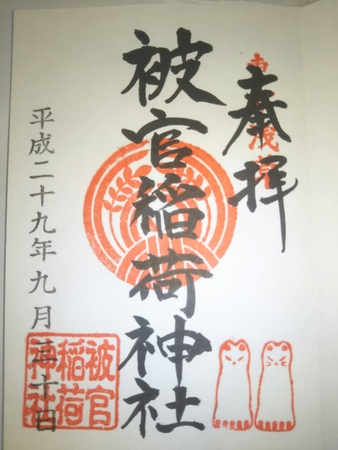 奉拝
被官稲荷神社
平成二十九年九月三十日
被官
稲荷
神社